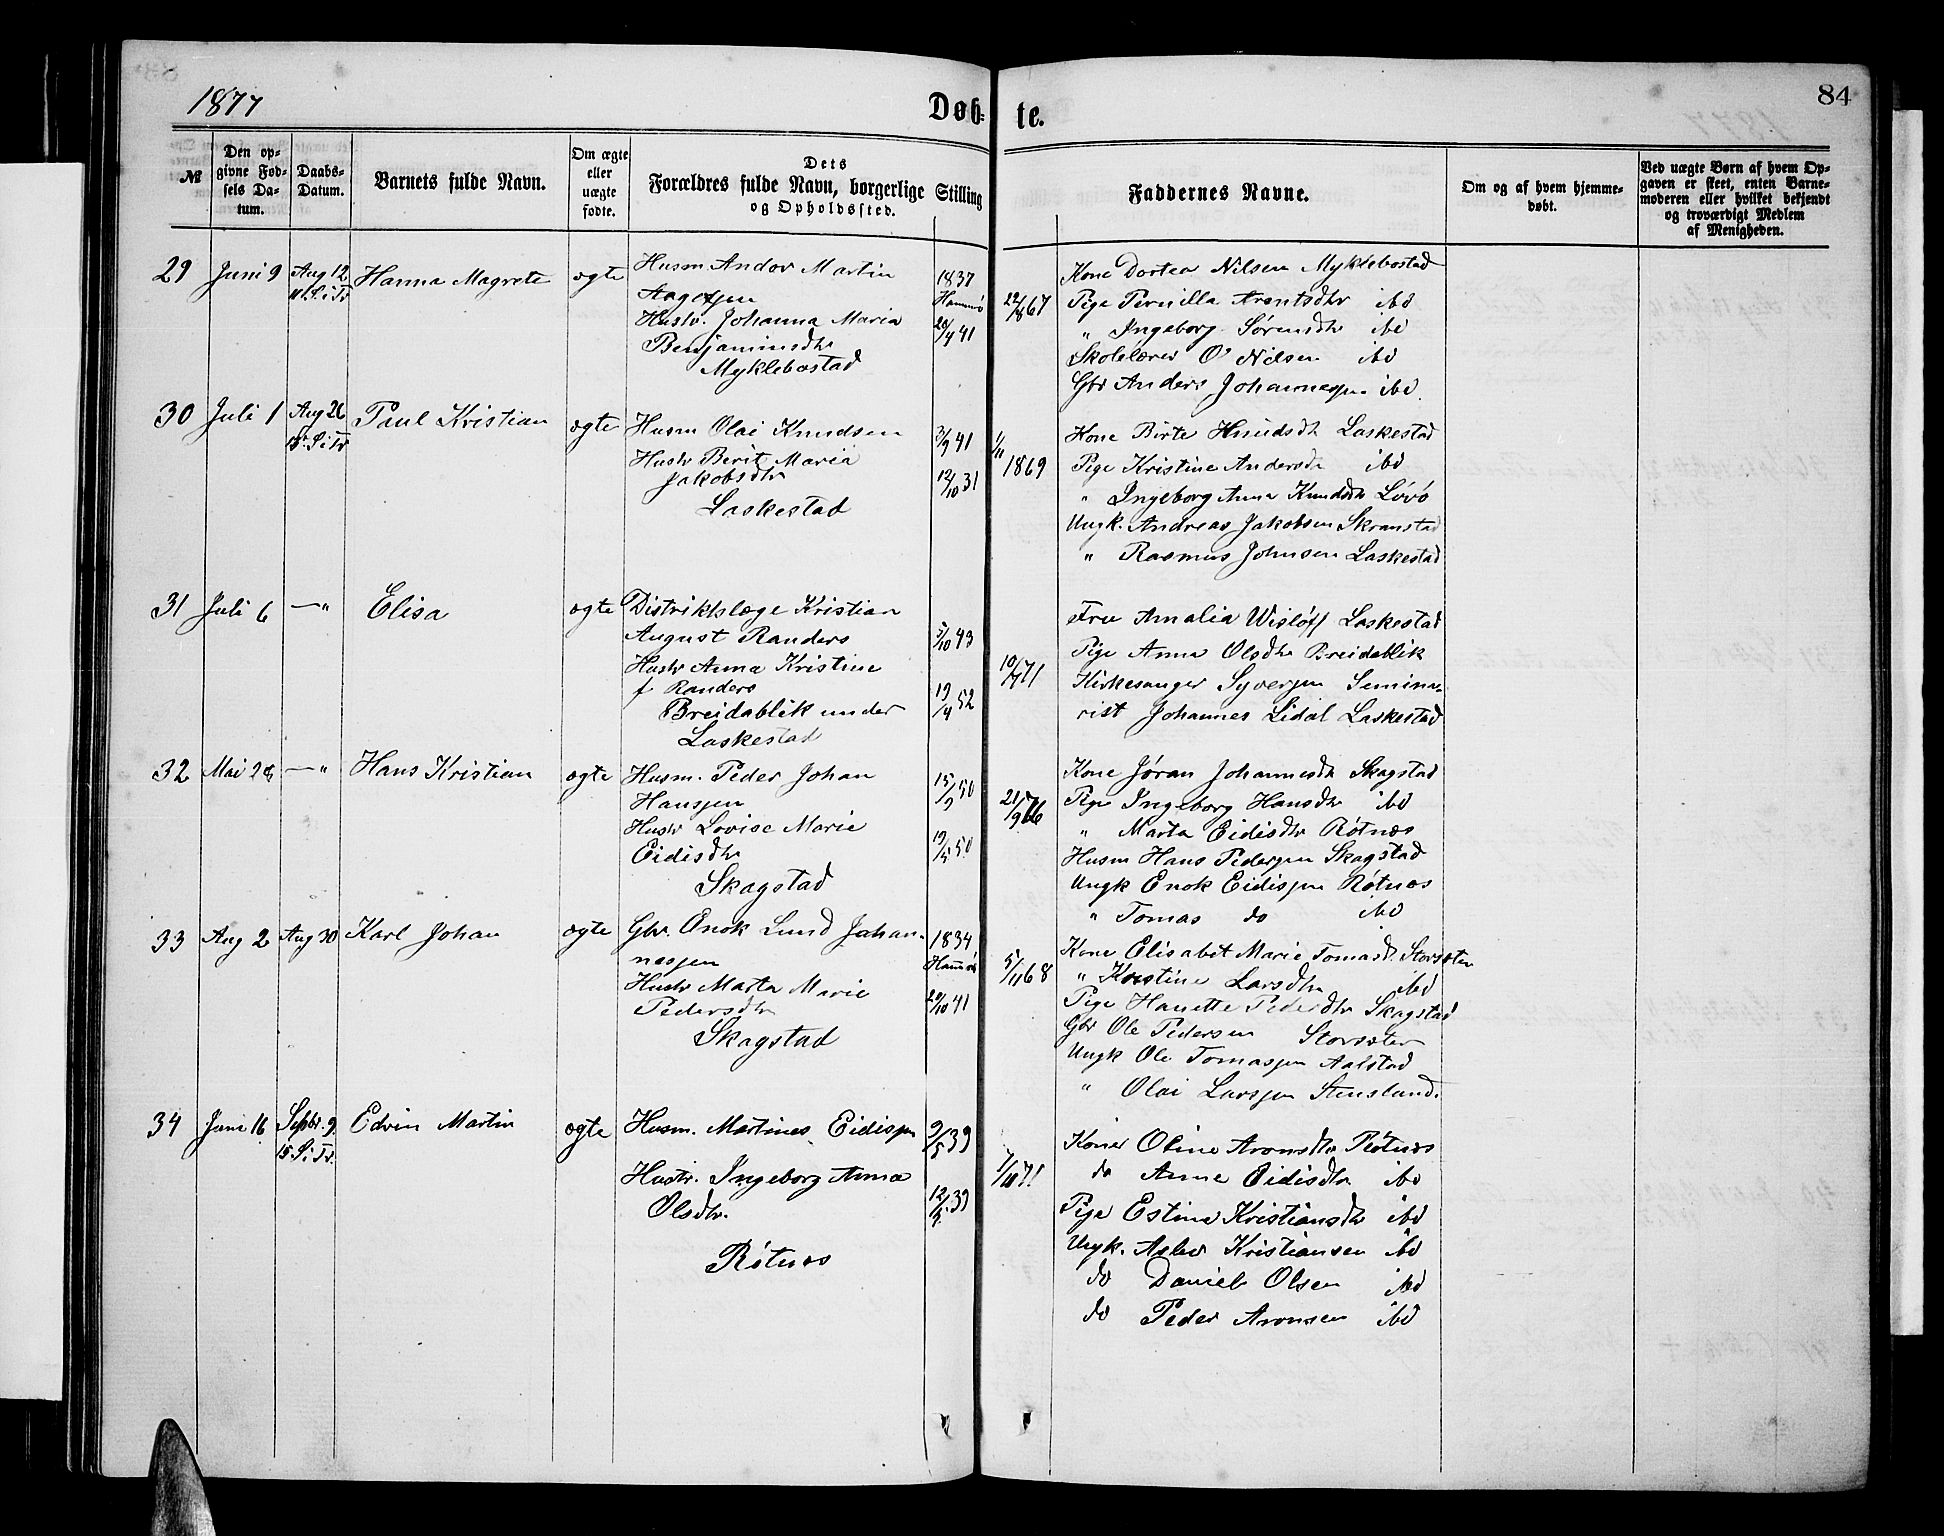 1877
Døb-
te.
84
№
Den op-
givne Fød-
sels Da-
tum.
Daabs-
Datum.
Barnets fulde Navn.
Om ægte
eller
uægte
fødte.
Dets
Forældres fulde Navn, borgerlige Stilling
og Opholdssted.
Faddernes Navne.
Om og af hvem hjemme-
døbt.
Ved uægte Børn af hvem Op-
gaven er skeet, enten Barne-
moderen eller hvilket bekjendt
og troværdigt Medlem
af Menigheden.
29 Juni 9 Aug 12 Hanna Magrete ægte
11 S. i Tr
Husm Andor Martin
Aagesen
Hustr. Johanna Maria
Benjaminsdtr
Myklebostad
1837
Hammerø
20/4 41
22/8 67
Kone Dortea Nilsen Myklebostad
Pige Pernilla Arentsdtr ibd
" Ingeborg Sørensdtr ibd
Skolelærer O Nilsen ibd
Gbr Anders Johannessen ibd.
30 Juli 1 Aug 26 Paul Kristian ægte
13. S. i Tr
Husm Olai Knudsen
Hustr Berit Maria
Jakobsdtr
Laskestad
3/9 41
12/10 31
1/11
1869
Kone Birte Knudsdtr Laskestad
Pige Kristine Andersdtr ibd
" Ingeborg Anna Knudsdtr Løvø
Ungk. Andreas Jakobsen Skranstad
" Rasmus Johnsen Laskestad
31 Juli 6 — " Elisa ægte
Distriktslæge Kristian
August Randers
Hustr Anna Kristine
f Randers
Breidablik under
Laskestad
5/10 43
19/4 52
10/7 71
Fru Amalia Wisløff Laskestad
Pige Anna Olsdtr Breidablik
Kirkesanger Syversen Semina-
rist Johannes Lidal Laskestad
32 Mai 28 — " Hans Kristian ægte
Husm. Peder Johan
Hanssen
Hustr Lovise Marie
Eidisdtr
Skagstad
15/9 50
19/5 50
21/9 76
Kone Jøran Johannesdtr Skagstad
Pige Ingeborg Hansdtr ibd
" Marta Eidisdtr Røtnæs
Husm Hans Pedersen Skagstad
Ungk Enok Eidissen Røtnæs
" Tomas do ibd
33 Aug 2 Aug 30 Karl Johan ægte
Gbr. Enok Lund Johan-
nessen
Hustr Marta Marie
Pedersdtr
Skagstad
1834
Hamerø
20/10 41
5/11 68
Kone Elisabet Marie Tomasdtr Storsæter
" Kristine Larsdtr ibd
Pige Hanette Pedersdtr Skagstad
Gbr Ole Pedersen Storsæter
Ungk Ole Tomassen Aalstad
" Olai Larssen Stensland.
34 Juni 16 Septbr. 9. Edvin Martin ægte
15. S. i Tr.
Husm. Martines Eidissen
Hustr. Ingeborg Anna
Olsdtr.
Røtnæs
9/5 39
39
71
Koner Oline Aronsdtr Røtnæs
do Anne Eidisdtr ibd
Pige Estina Kristiansdtr ibd
Ungk. Kristiansen ibd
do Daniel Olsen ibd
do Peder Aronsen ibd